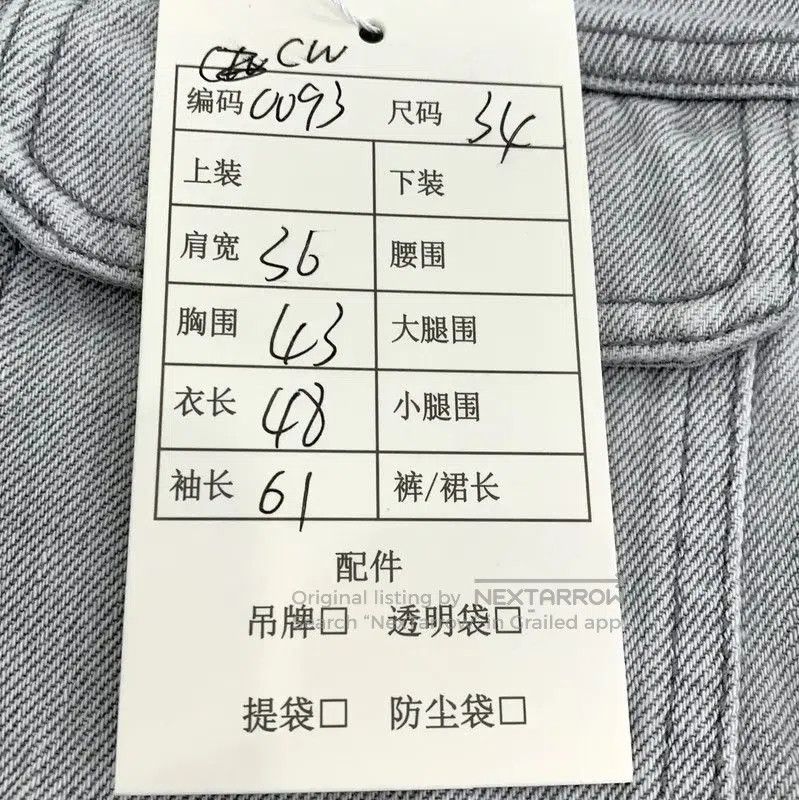 CW
编码 0093 尺码 34
上装 下装
肩宽 36 腰围
胸围 43 大腿围
衣长 48 小腿围
袖长 61 裤/裙长
配件
Original listing by NEXTARROW
吊牌□ 透明袋□
Search "Nextarrow" on Grailed app
提袋□ 防尘袋□